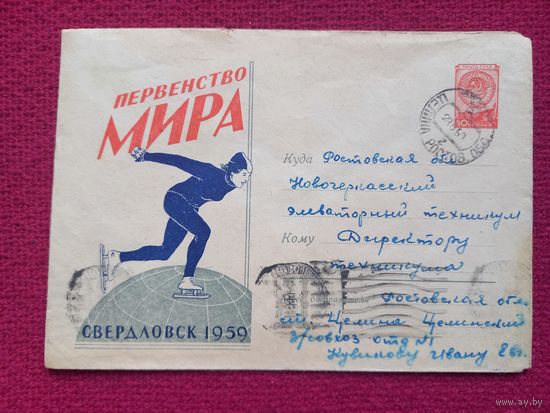 ПЕРВЕНСТВО
МИРА
СВЕРДЛОВСК 1959
ПОЧТА СССР
Куда Ростовская об
Новочеркасский
элеваторный техникум
Кому Директору
техникума
Ростовская обл
ст. Целина Целинский
з/совхоз отд №1
Кувикову Ивану
ay.by